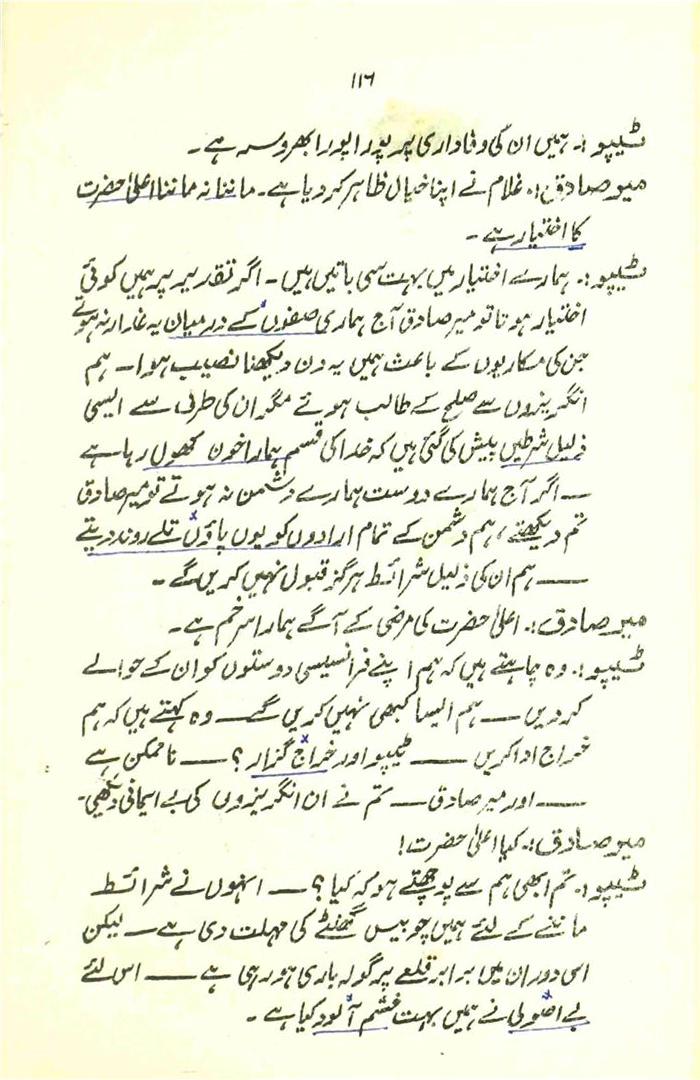 ۱۱۶
ٹیپو :۔ ہمیں ان کی وفاداری پر پورا پورا بھروسہ ہے ۔
میر صادق :۔ غلام نے اپنا خیال ظاہر کر دیا ہے ۔ ماننا نہ ماننا اعلیٰ حضرت
کا اختیار ہے ۔
ٹیپو :۔ ہمارے اختیار میں بہت سی باتیں ہیں ۔ اگر تقدیر پر ہمیں کوئی
اختیار ہوتا تو میر صادق آج ہماری صفوں کے درمیان یہ غدار نہ ہوتے
جن کی مکاریوں کے باعث ہمیں یہ دن دیکھنا نصیب ہوا ۔ ہم
انگریزوں سے صلح کے طالب ہوئے مگر ان کی طرف سے ایسی
ذلیل شرطیں پیش کی گئی ہیں کہ خدا کی قسم ہمارا خون کھول رہا ہے
— اگر آج ہمارے دوست ہمارے دشمن نہ ہوتے تو میر صادق
تم دیکھتے ، ہم دشمن کے تمام ارادوں کو یوں پاؤں تلے روند دیتے
— ہم ان کی ذلیل شرائط ہرگز قبول نہیں کریں گے ۔
میر صادق :۔ اعلیٰ حضرت کی مرضی کے آگے ہمارا سر خم ہے ۔
ٹیپو :۔ وہ چاہتے ہیں کہ ہم اپنے فرانسیسی دوستوں کو ان کے حوالے
کر دیں — ہم ایسا کبھی نہیں کریں گے — وہ کہتے ہیں کہ ہم
خراج ادا کریں — ٹیپو اور خراج گزار ؟ — ناممکن ہے
— اور میر صادق — تم نے ان انگریزوں کی بے ایمانی دیکھی ۔
میر صادق :۔ کیا اعلیٰ حضرت !
ٹیپو :۔ تم ابھی ہم سے پوچھتے ہو کہ کیا ؟ — انہوں نے شرائط
ماننے کے لئے ہمیں چوبیس گھنٹے کی مہلت دی ہے — لیکن
اس دوران میں برابر قلعے پر گولہ باری ہو رہی ہے — اس لئے
بے اصولی نے ہمیں بہت خشم آلود کیا ہے ۔